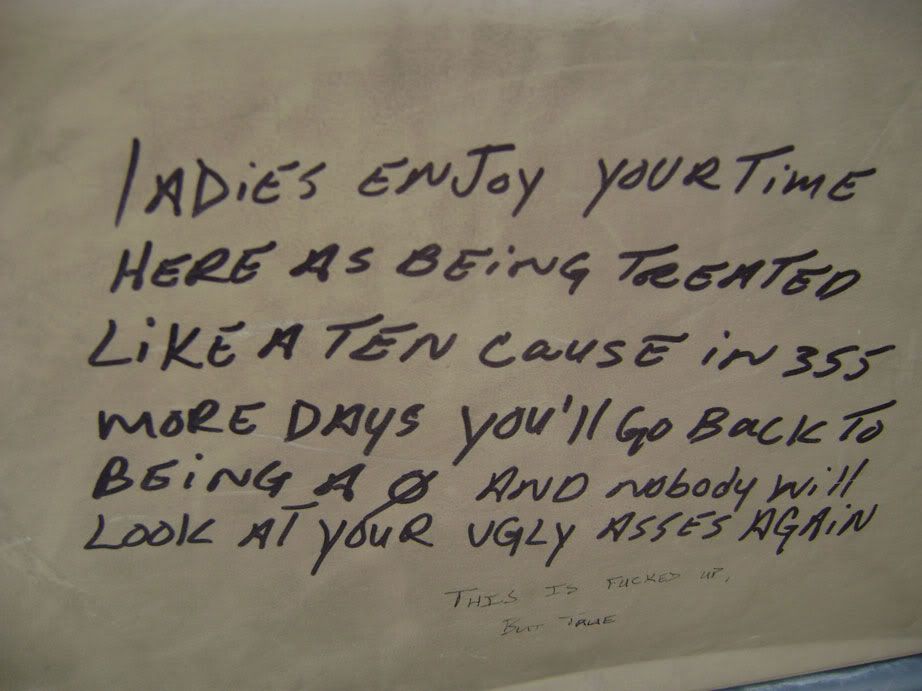 lADiES ENJoy YOUR TiME
HERE AS BEiNG TREATED
LiKE A TEN CauSE iN 355
MORE DAYS YOU'll Go BACK To
BEiNG A Ø AND Nobody will
LOOK AT YOUR UGLY ASSES AGAiN
THIS IS FUCKED UP,
BUT TRUE